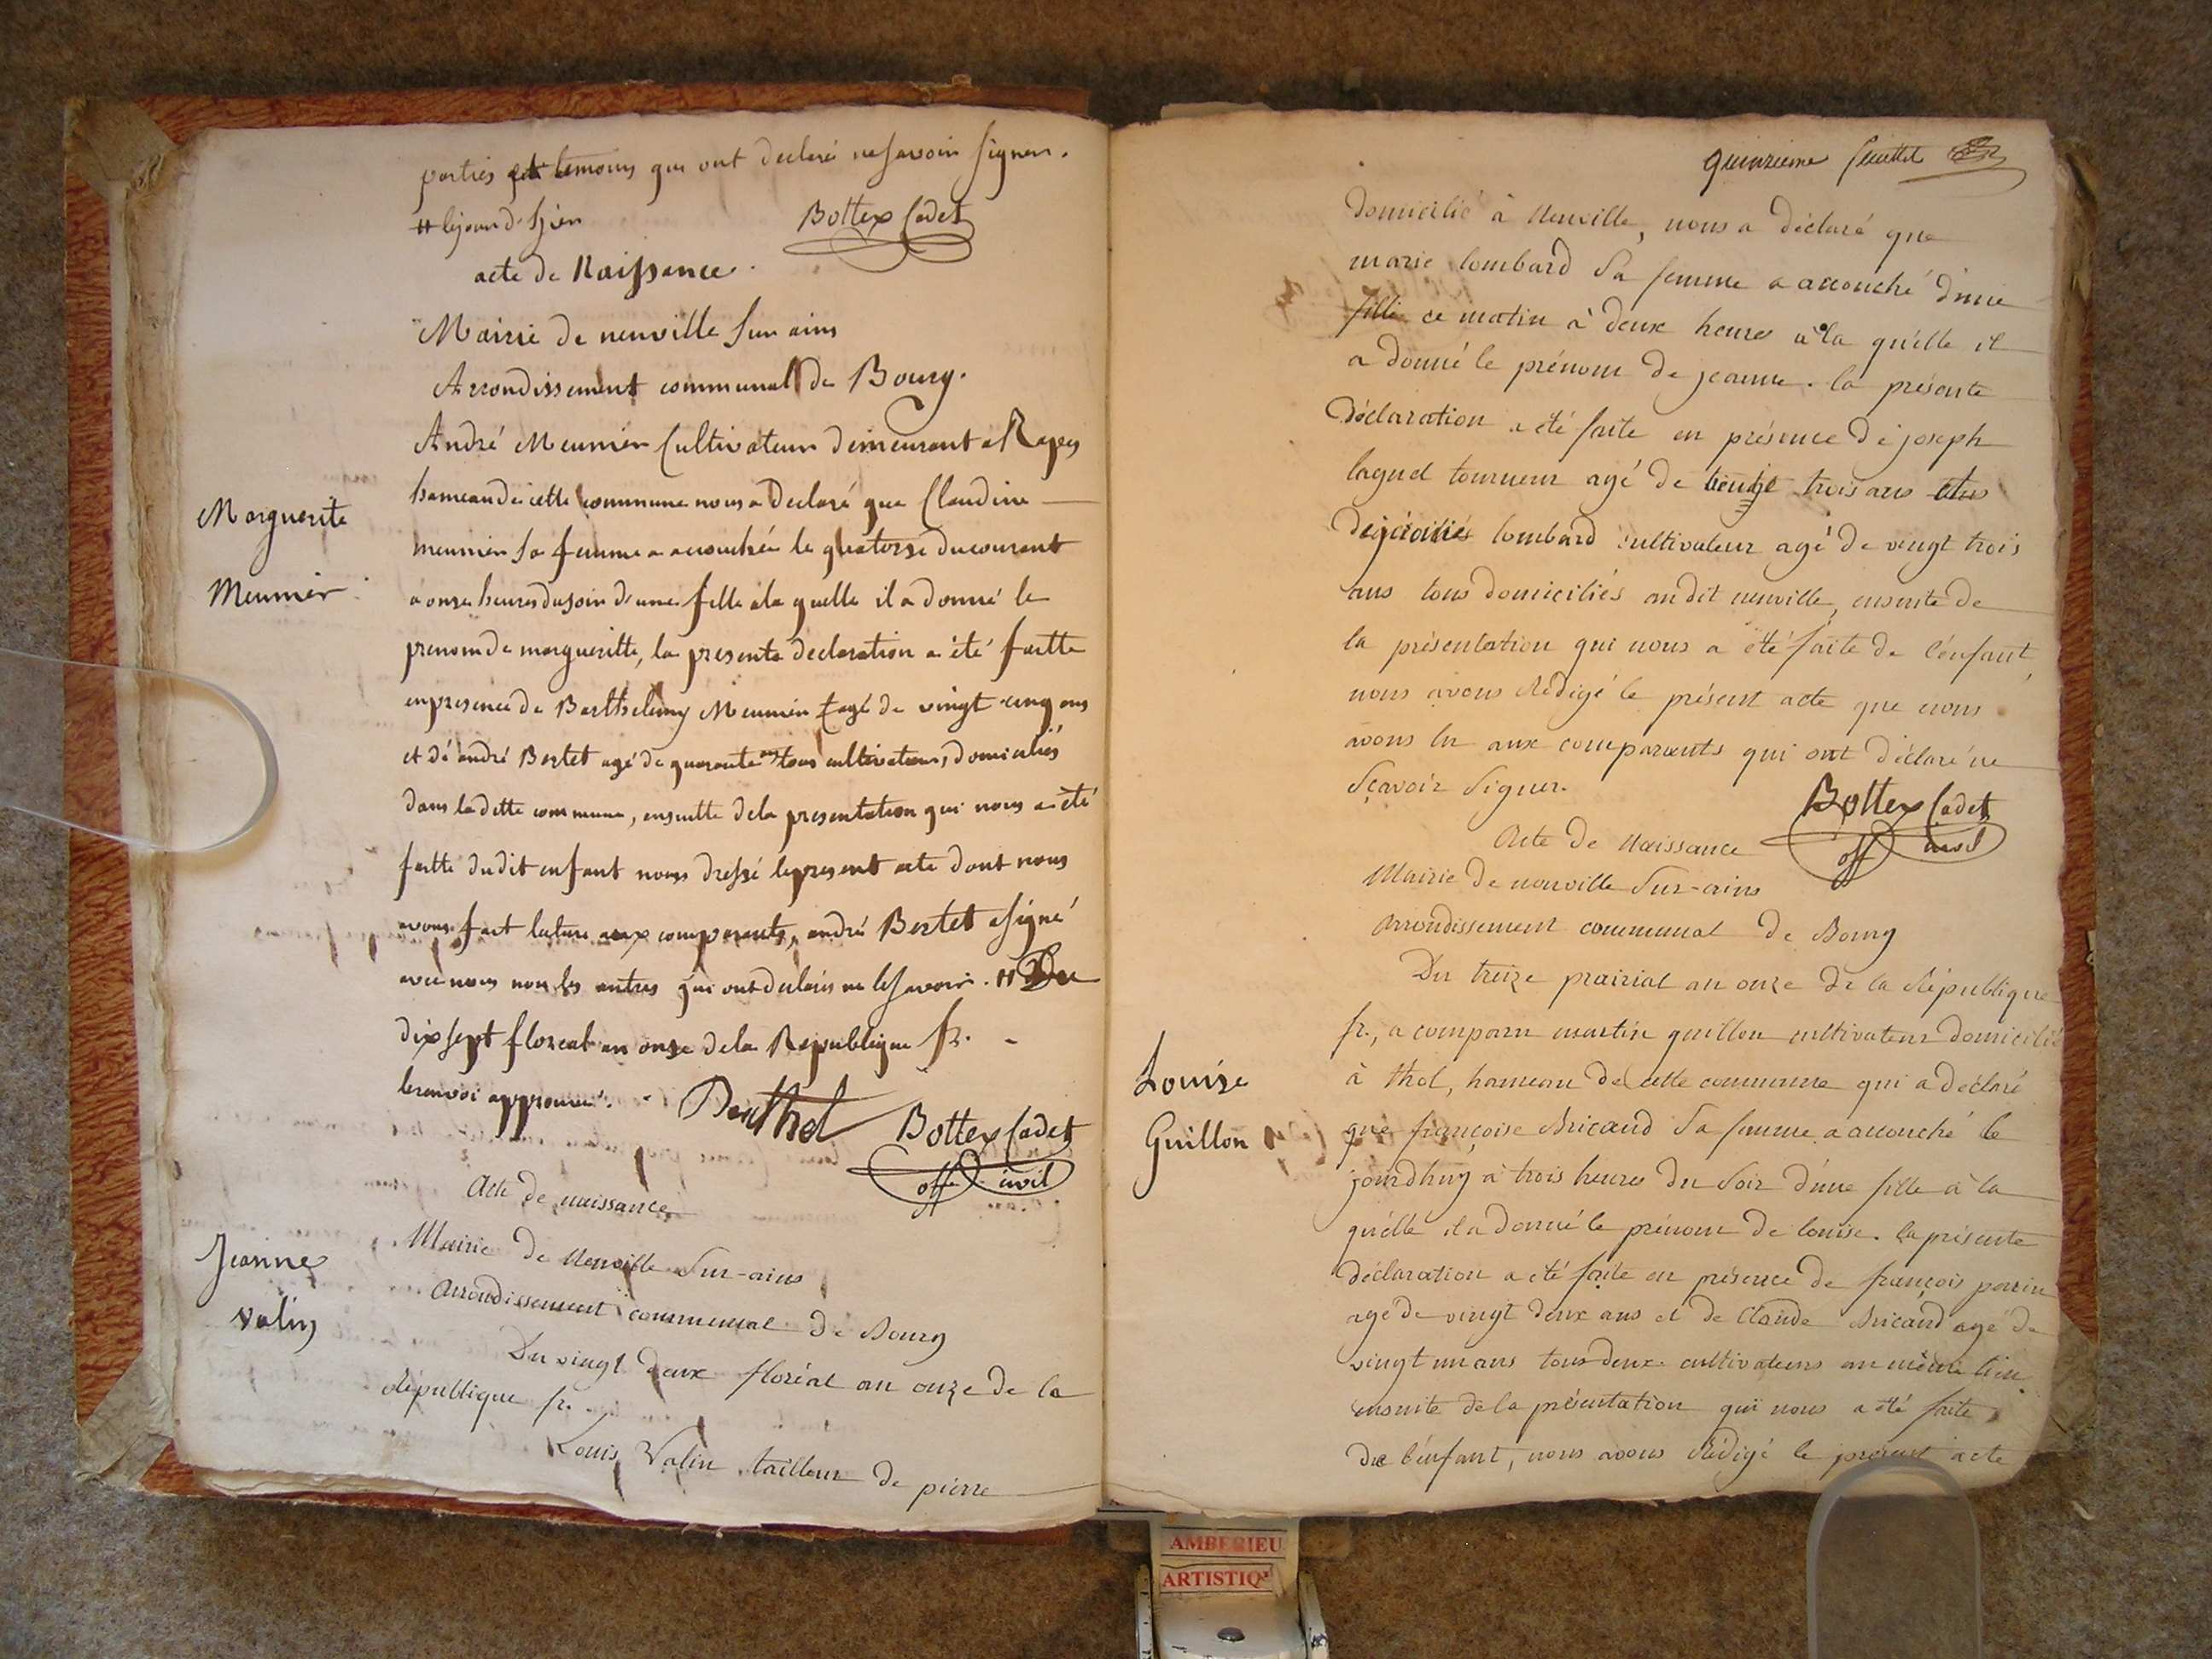 parties et temoins qui ont declaré ne savoir signer.
# le jour d'hier
Bottex Cadet
acte de Naissance.
Mairie de neuville sur ains
Arrondissement communal de Bourg.
Marguerite
Meunier
André Meunier Cultivateur demeurant a Rapes
hameau de cette commune nous a declaré que Claudine
meunier sa femme a accouchée le quatorze du courant
a onze heures du soir d'une fille a la quelle il a donné le
prenom de margueritte, la presente declaration a été faitte
en presence de Barthelemy Meunier agé de vingt cinq ans
et dé andré Bertet agé de quarante ans tous cultivateurs, domiciliés
dans la ditte commune, ensuitte de la presentation qui nous a été
faitte du dit enfant nous dressé le present acte dont nous
avons fait lecture aux comparants, andré Bertet a signé
avec nous non les autres qui ont declarés ne le savoir. # Du
dix sept floreal an onze de la Republique fr.
le renvoi approuvé.
Berthet
Bottex Cadet
off. civil
Acte de naissance
Mairie de Neuville Sur-ains
Jeanne
Valin
arrondissement communal de Bourg
Du vingt deux floréal an onze de la
République fr.
Louis Valin tailleur de pierre
quinzieme feuillet
domicilié à Neuville, nous a déclaré que
marie lombard Sa femme a accouché d'une
fille ce matin à deux heures à la quélle il
a donné le prénom de jeanne. la présente
déclaration a été faite en présence dé joseph
laguel tourneur agé de trois ans
lombard cultivateur agé de vingt trois
ans tous domiciliés au dit neuville, ensuite de
la présentation qui nous a été faite de l'énfant,
nous avons Rédigé le présent acte que nous
avons lu aux comparants qui ont déclaré ne
Sçavoir Signer.
Bottex Cadet
off civil
Acte de Naissance
Mairie de neuville Sur-ains
arrondissement communal de Bourg
Du treize prairial an onze de la République
fr., a comparu martin guillon cultivateur domicilié
Louise
Guillon
à thol, hameau de cette commune qui a déclaré
que françoise Bricaud Sa femme a accouché le
jourdhuy à trois heures du Soir d'une fille à la
quélle il a donné le prénom de louise. la présente
déclaration a été faite en présence de françois perrin
agé de vingt deux ans et de Claude Bricaud agé de
vingt un ans tous deux cultivateurs au même lieu
ensuite de la présentation qui nous a été faite
de l'énfant, nous avons Rédigé le présent acte
AMBERIEU
ARTISTIQ